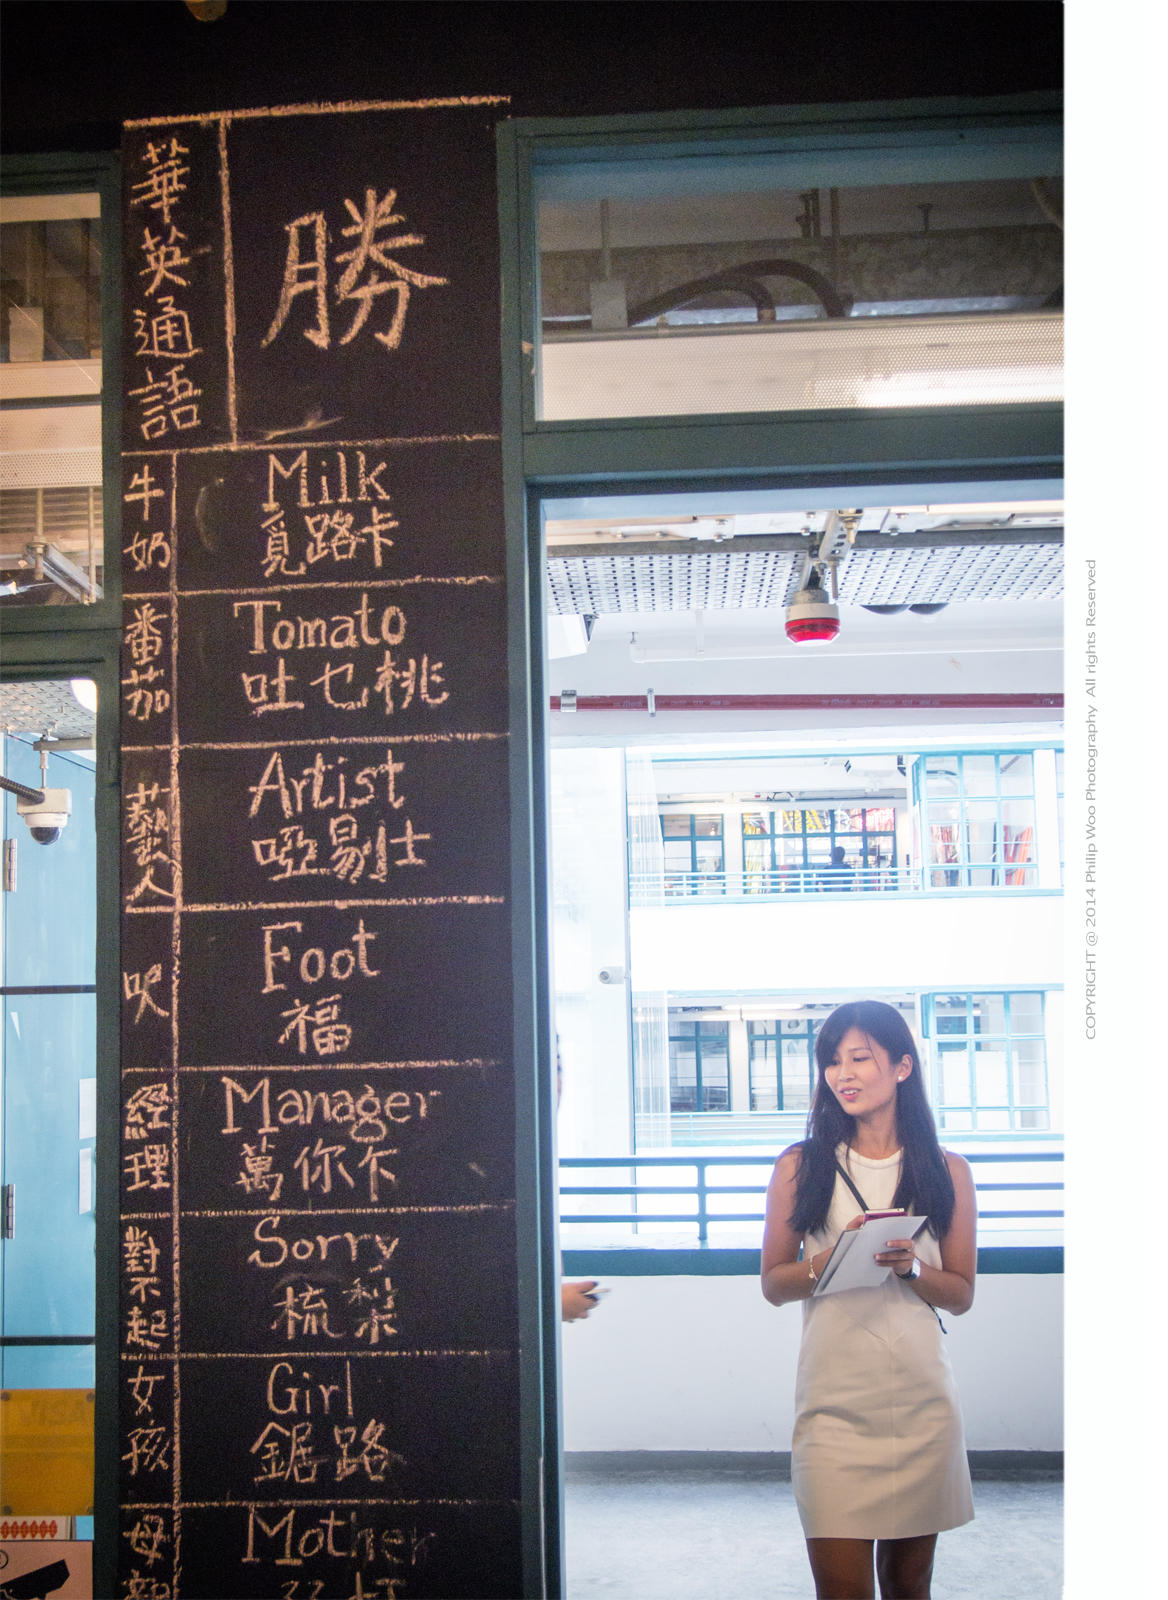 華英通語
勝
牛奶
Milk
覓路卡
番茄
Tomato
吐乜桃
藝人
Artist
啞剔仕
呎
Foot
福
經理
Manager
萬你乍
對不起
Sorry
梳梨
女孩
Girl
鋸路
母親
Mother
VISA
COPYRIGHT @ 2014 Philip Woo Photography All rights Reserved